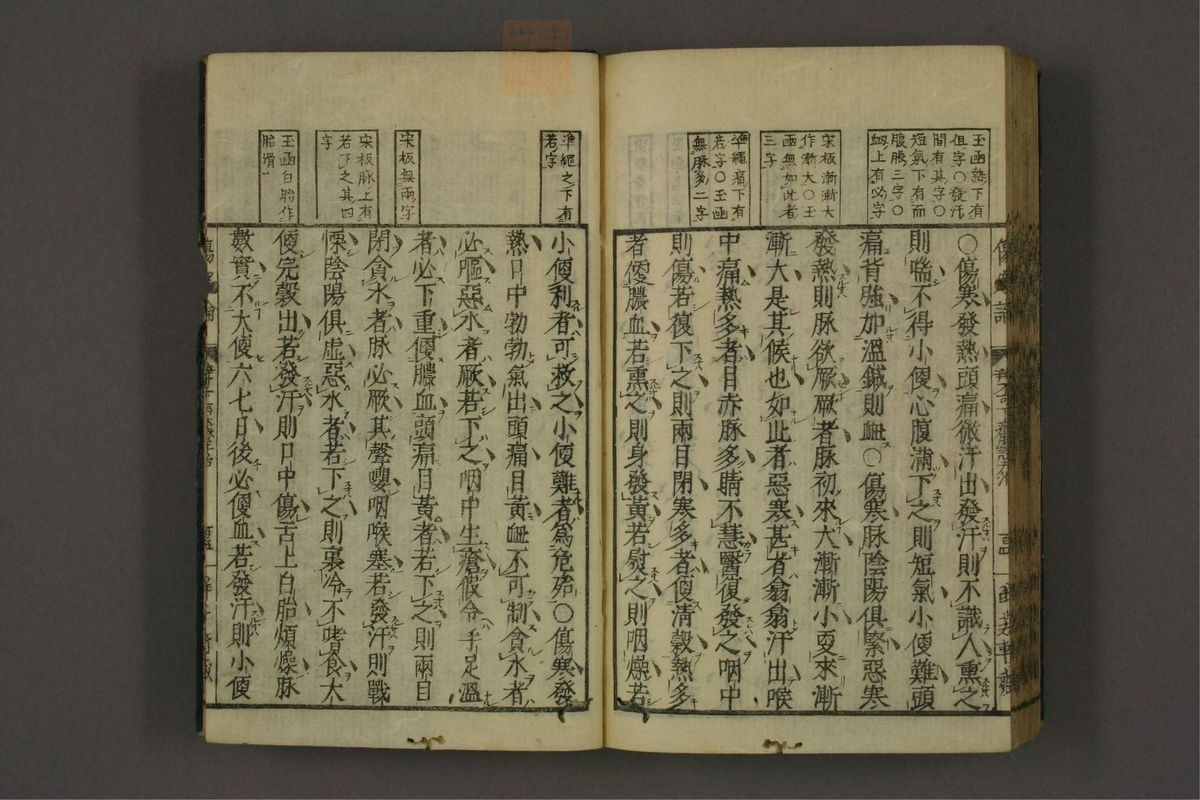 玉函熱下有
但字○發汗
間有其字○
短氣下有而
腹脹三字○
衂上有必字
宋板漸漸大
作漸大○玉
函無如此者
三字
準繩痛下有
若字○玉函
無脉多二字
○傷寒發熱頭痛微汗出發汗則不識人熏之
則喘不得小便心腹滿下之則短氣小便難頭
痛背強加溫鍼則衂○傷寒脉陰陽俱緊惡寒
發熱則脉欲厥厥者脉初來大漸漸小更來漸
漸大是其候也如此者惡寒甚者翕翕汗出喉
中痛熱多者目赤脉多睛不慧醫復發之咽中
則傷若復下之則兩目閉寒多者便清穀熱多
者便膿血若熏之則身發黃若熨之則咽燥若
準繩之下有
若字
宋板無兩字
宋板脉上有
若下之其四
字
玉函白胎作
胎滑
小便利者可救之小便難者爲危殆○傷寒發
熱口中勃勃氣出頭痛目黃衂不可制貪水者
必嘔惡水者厥若下之咽中生瘡假令手足溫
者必下重便膿血頭痛目黃者若下之則兩目
閉貪水者脉必厥其聲嚶咽喉塞若發汗則戰
慄陰陽俱虛惡水者若下之則裏冷不嗜食大
便完穀出若發汗則口中傷舌上白胎煩燥脉
數實不大便六七日後必便血若發汗則小便